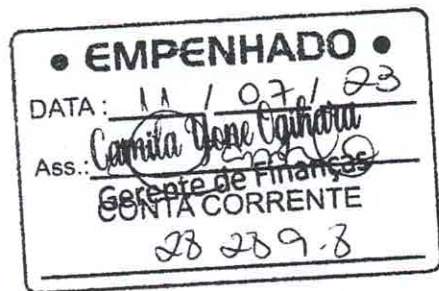 • EMPENHADO •
DATA: 11 / 07 / 23
Ass.: Camila Yone Ogihara
Gerente de Finanças
CONTA CORRENTE
28 289-8